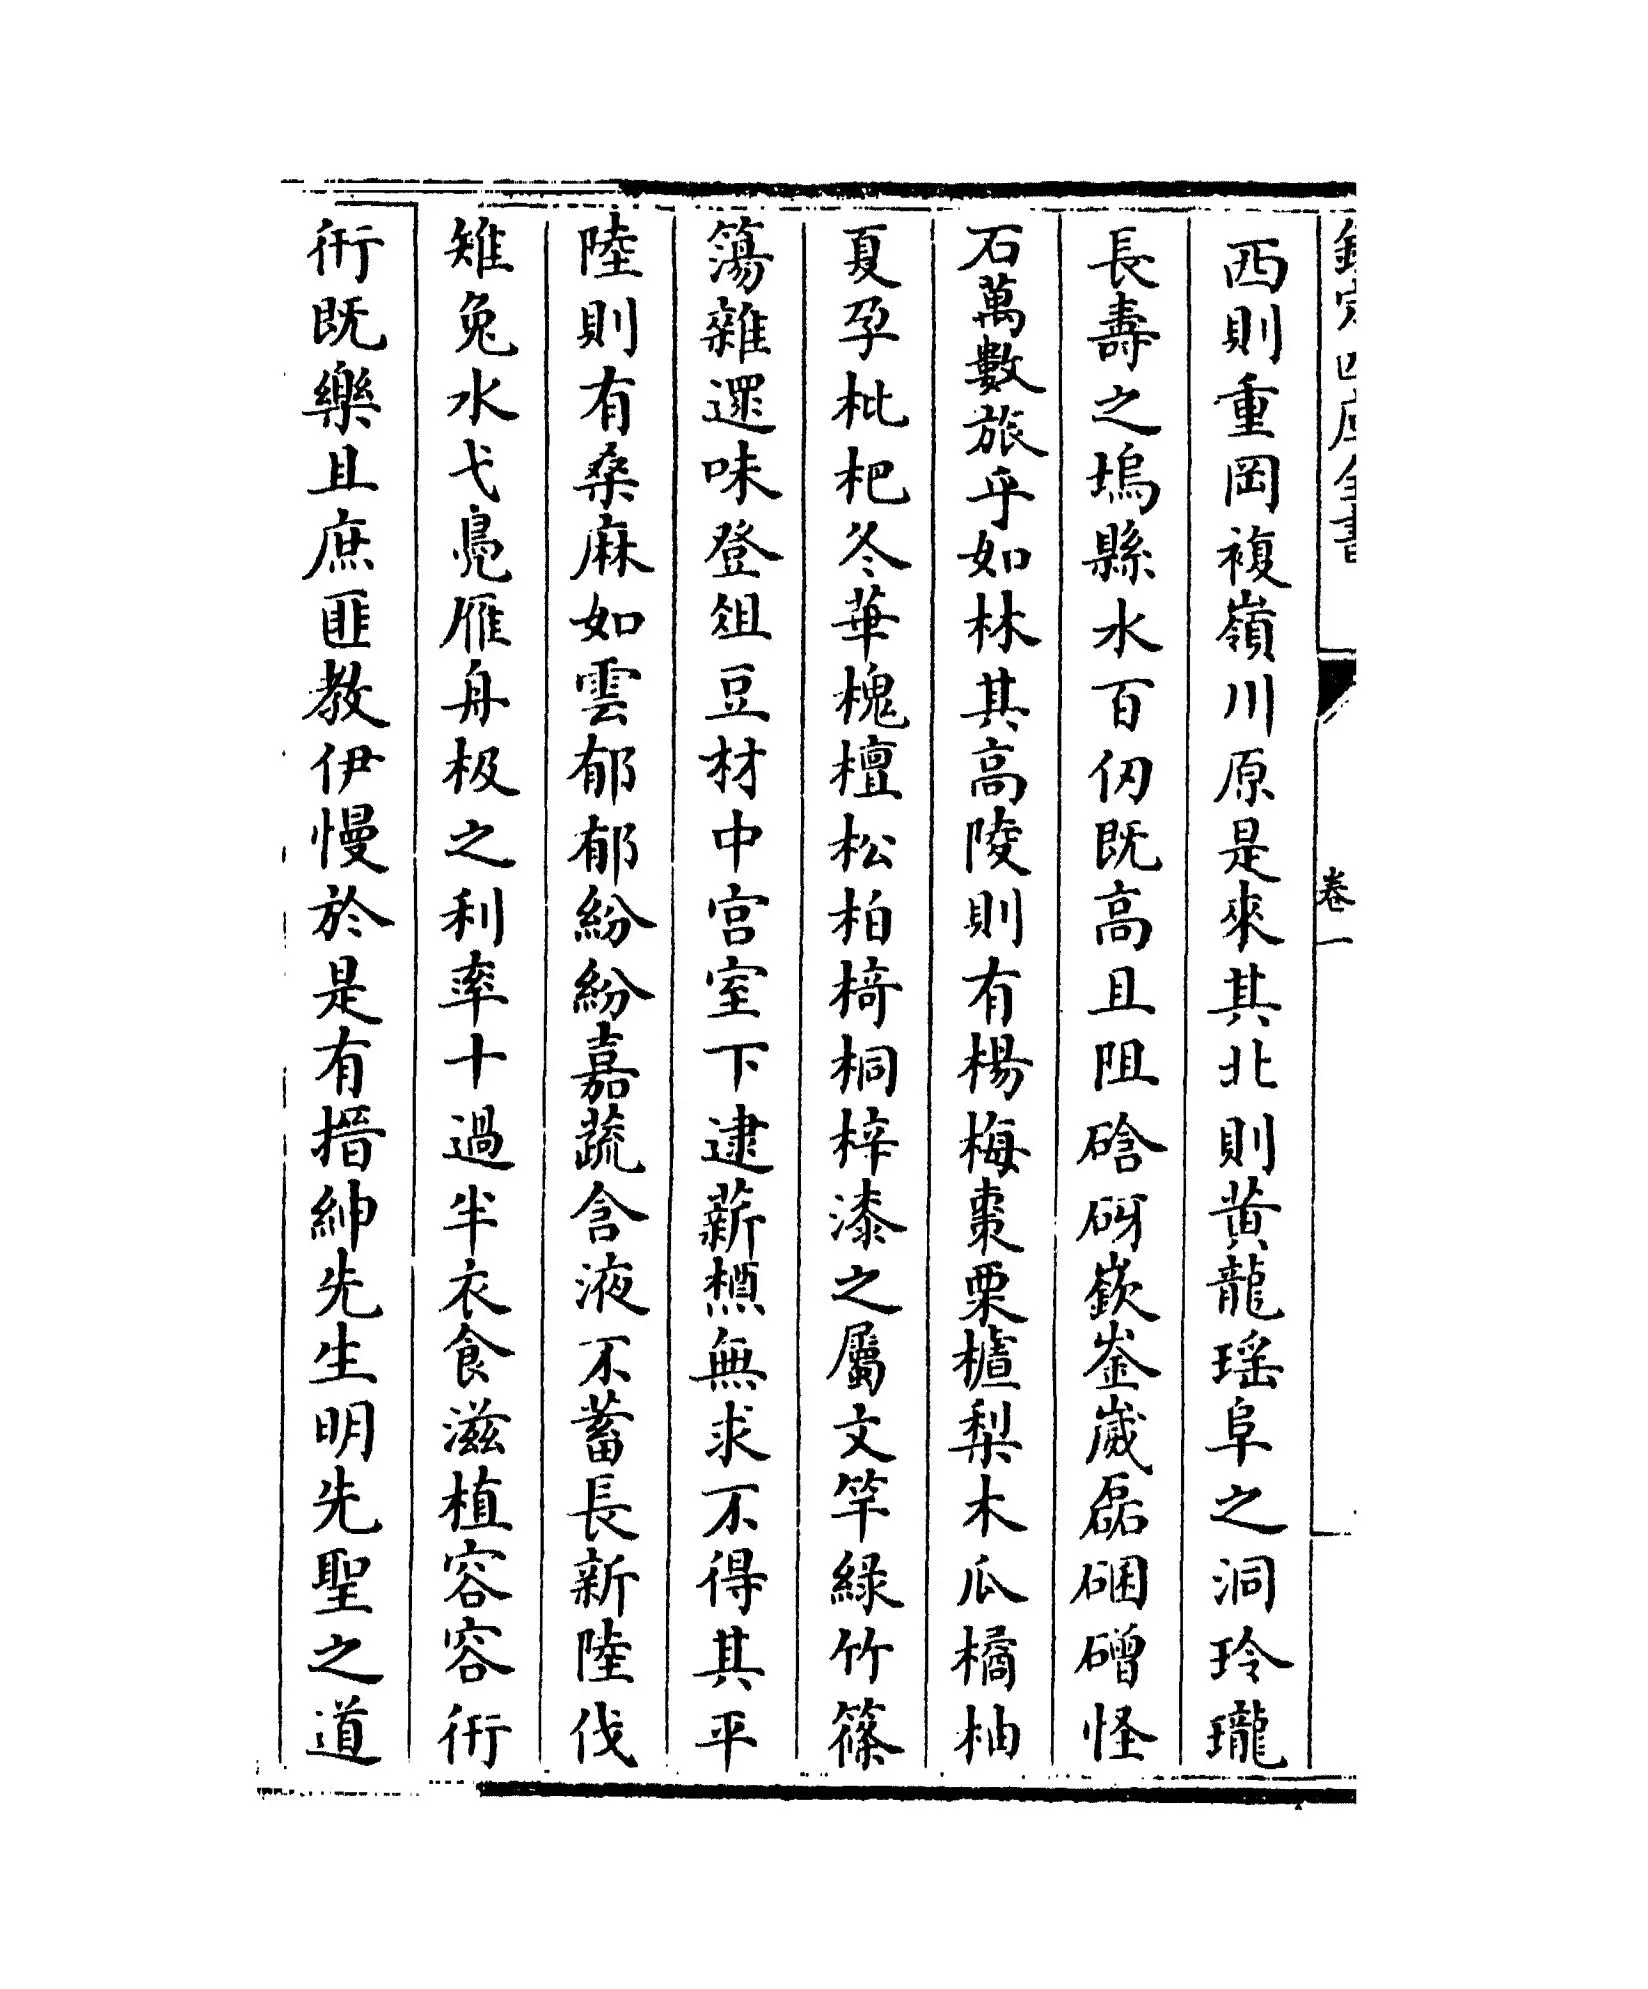 欽定四庫全書 卷一
西則重岡複嶺川原是來其北則黄龍瑶阜之洞玲瓏
長壽之塢縣水百仞既高且阻硆砑嶔崟崴磊硱磳怪
石萬數旅乎如林其高陵則有楊梅棗栗樝梨木瓜橘柚
夏孕枇杷冬華槐檀松柏椅桐梓漆之屬文竿緑竹篠
簜雜遝味登俎豆材中宫室下逮薪槱無求不得其平
陸則有桑麻如雲郁郁紛紛嘉蔬含液不蓄長新陸伐
雉兔水弋鳬雁舟极之利率十過半衣食滋植容容衎
衎既樂且庶匪教伊慢於是有搢紳先生明先聖之道